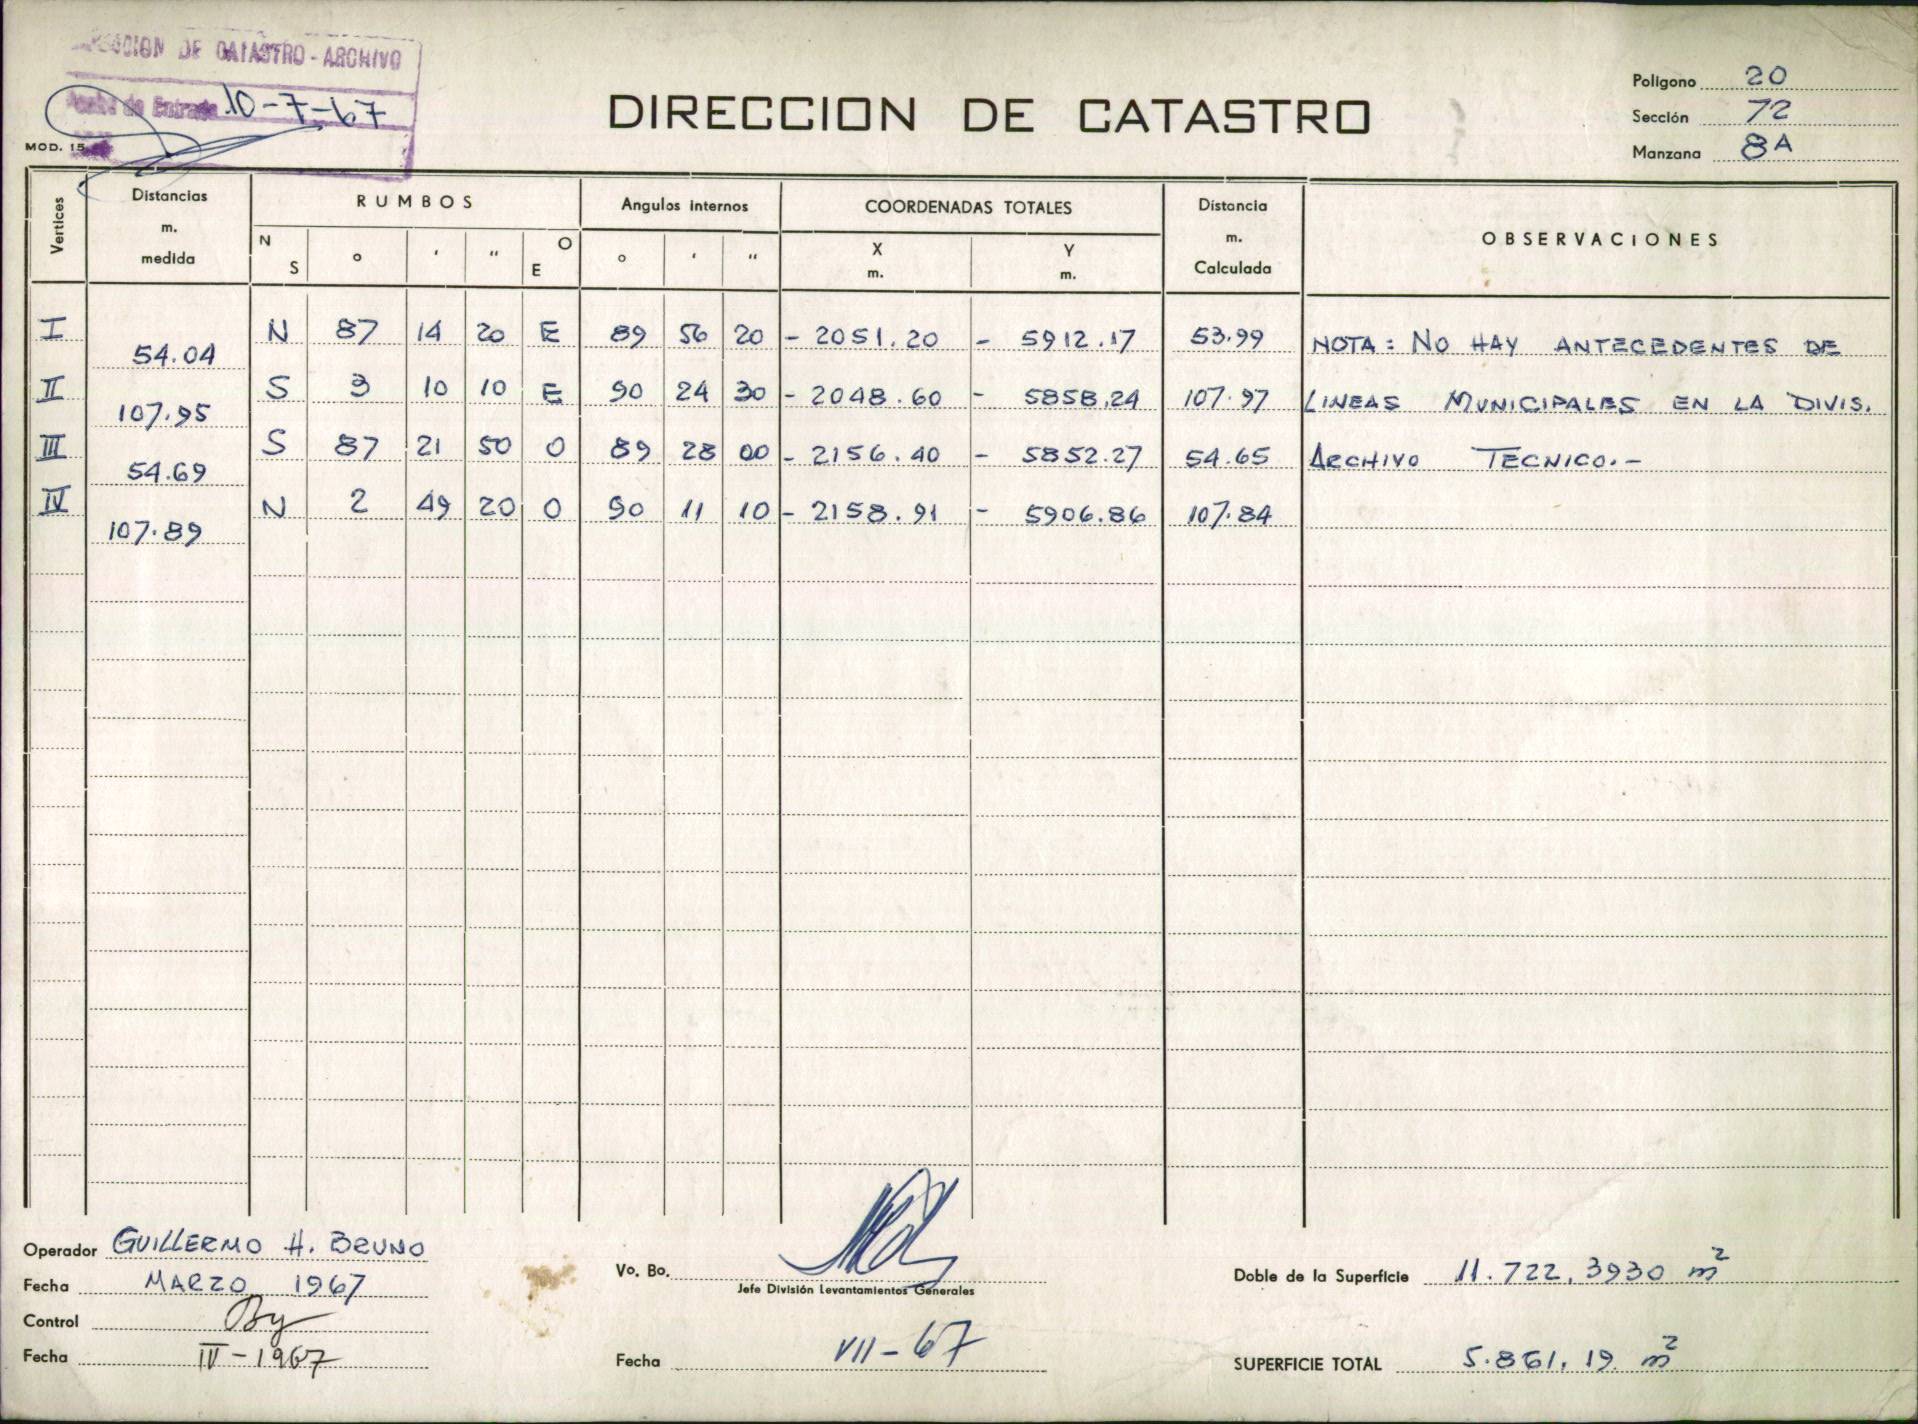 DIRECCION DE CATASTRO - ARCHIVO
Fecha de Entrada 10-7-67
MOD. 15
DIRECCION DE CATASTRO
Polígono 20
Sección 72
Manzana 8A
Vertices
Distancias m. medida
RUMBOS
N S ° ' " O E
Angulos internos
° ' "
COORDENADAS TOTALES
X m. Y m.
Distancia m. Calculada
OBSERVACIONES
I 54.04 N 87 14 20 E 89 56 20 - 2051.20 - 5912.17 53.99 NOTA: NO HAY ANTECEDENTES DE
II 107.95 S 3 10 10 E 90 24 30 - 2048.60 - 5858.24 107.97 LINEAS MUNICIPALES EN LA DIVIS.
III 54.69 S 87 21 50 O 89 28 00 - 2156.40 - 5852.27 54.65 ARCHIVO TECNICO.-
IV 107.89 N 2 49 20 O 90 11 10 - 2158.91 - 5906.86 107.84
Operador GUILLERMO H. BRUNO
Fecha MARZO 1967
Control
Fecha IV-1967
Vo. Bo.
Jefe División Levantamientos Generales
Fecha VII-67
Doble de la Superficie 11.722,3930 m²
SUPERFICIE TOTAL 5.861,19 m²